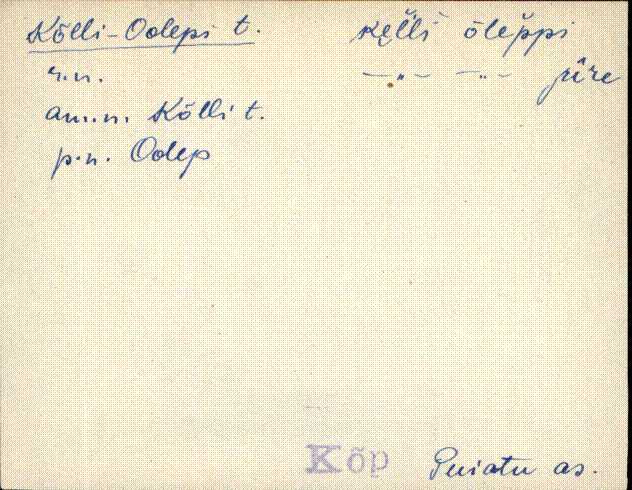 Kõlli-Odlepi t. kęl̆l̆i ōlĕppi
r.n. —„— —„— jūre
am.n. Kõlli t.
p.n. Odlep
Kõp Puiatu as.